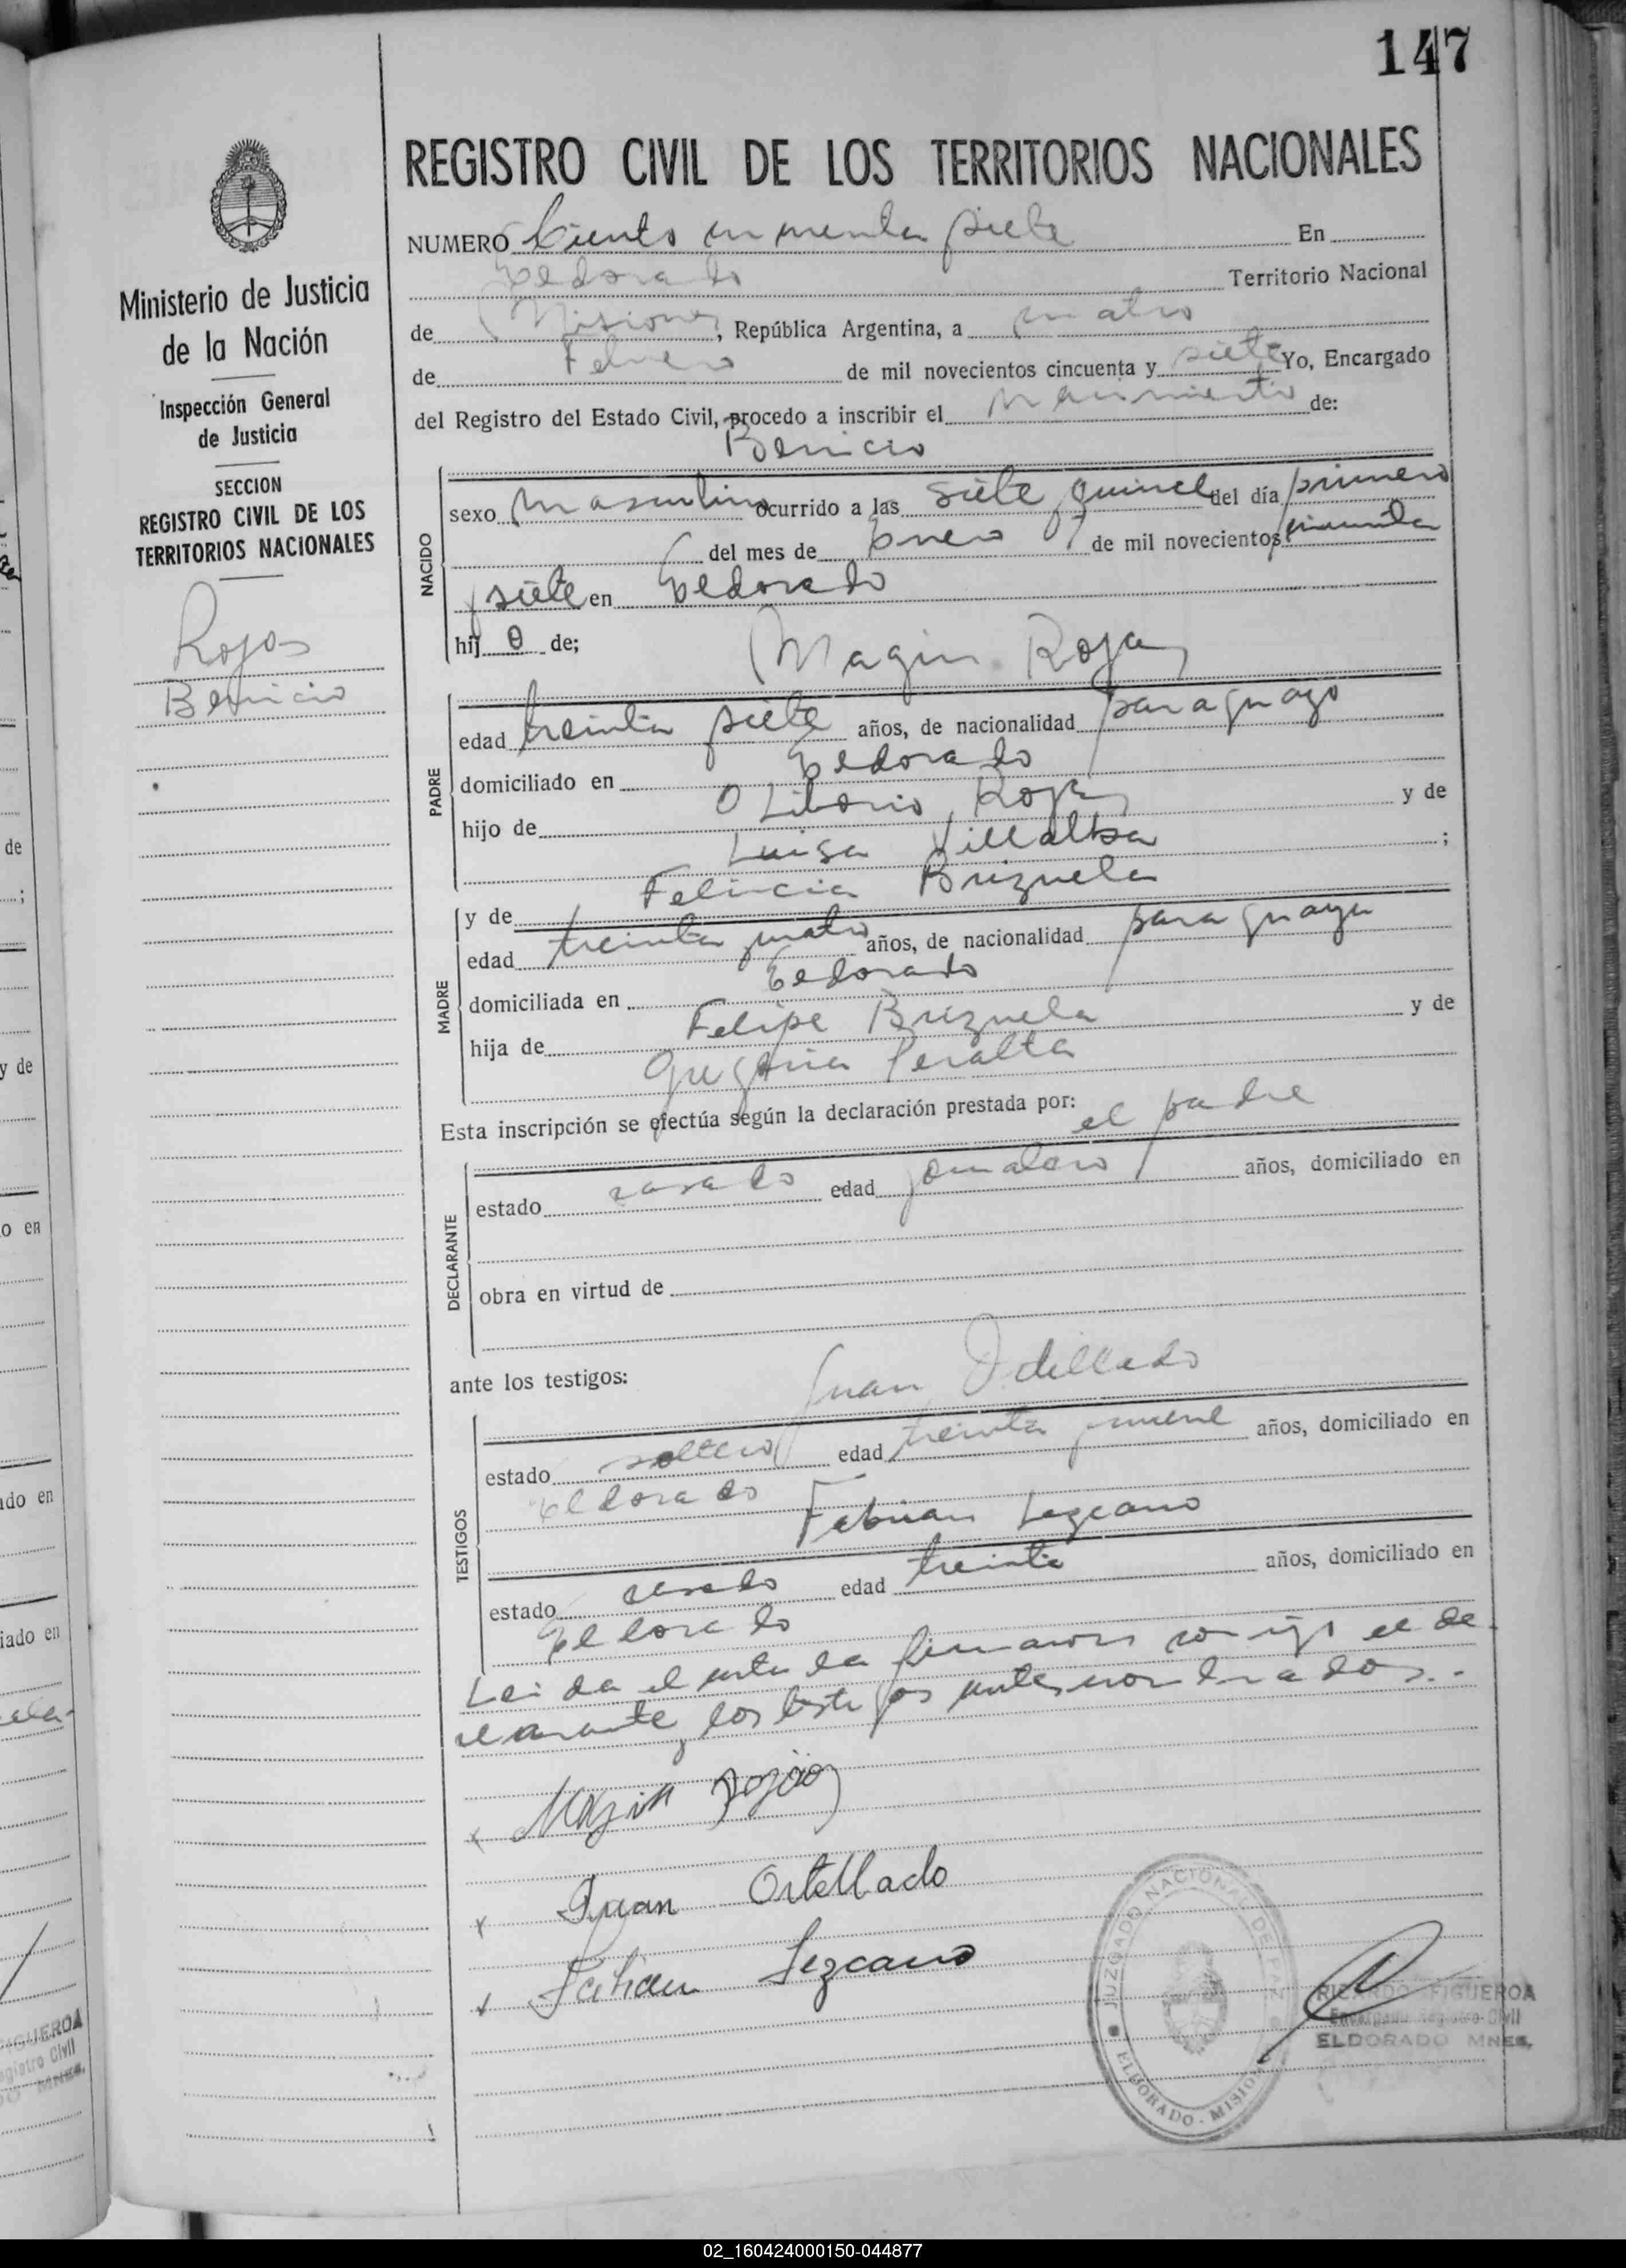 147
REGISTRO CIVIL DE LOS TERRITORIOS NACIONALES
Ministerio de Justicia
de la Nación
Inspección General
de Justicia
SECCION
REGISTRO CIVIL DE LOS
TERRITORIOS NACIONALES
Rojas
Benicio
NUMERO Ciento cuarenta siete En
Eldorado Territorio Nacional
de Misiones, República Argentina, a cuatro
de Febrero de mil novecientos cincuenta y siete Yo, Encargado
del Registro del Estado Civil, procedo a inscribir el nacimiento de:
Benicio
NACIDO
sexo masculino ocurrido a las siete quince del día primero
del mes de Enero de mil novecientos cincuenta
y siete en Eldorado
hijo de; Magin Rojas
PADRE
edad treinta y siete años, de nacionalidad paraguayo
domiciliado en Eldorado
hijo de O Liborio Rojas y de
Luisa Villalba ;
MADRE
y de Felicia Brizuela
edad treinta y cuatro años, de nacionalidad paraguaya
domiciliada en Eldorado
hija de Felipe Brizuela y de
Gregoria Peralta
Esta inscripción se efectúa según la declaración prestada por: el padre
DECLARANTE
estado casado edad jornalero años, domiciliado en
obra en virtud de
ante los testigos: Juan
TESTIGOS
estado soltero edad treinta y nueve años, domiciliado en
Eldorado
Fabian Lezcano
estado casado edad treinta años, domiciliado en
Eldorado
Leida el acta la firmaron conmigo el de
clarante y los testigos antes nombrados.
x Magin Rojas
x Juan Ortellado
x Fabian Lezcano
JUZGADO NACIONAL DE PAZ
ELDORADO - MISIONES
RICARDO FIGUEROA
Encargado Registro Civil
ELDORADO MNES.
02_160424000150-044877